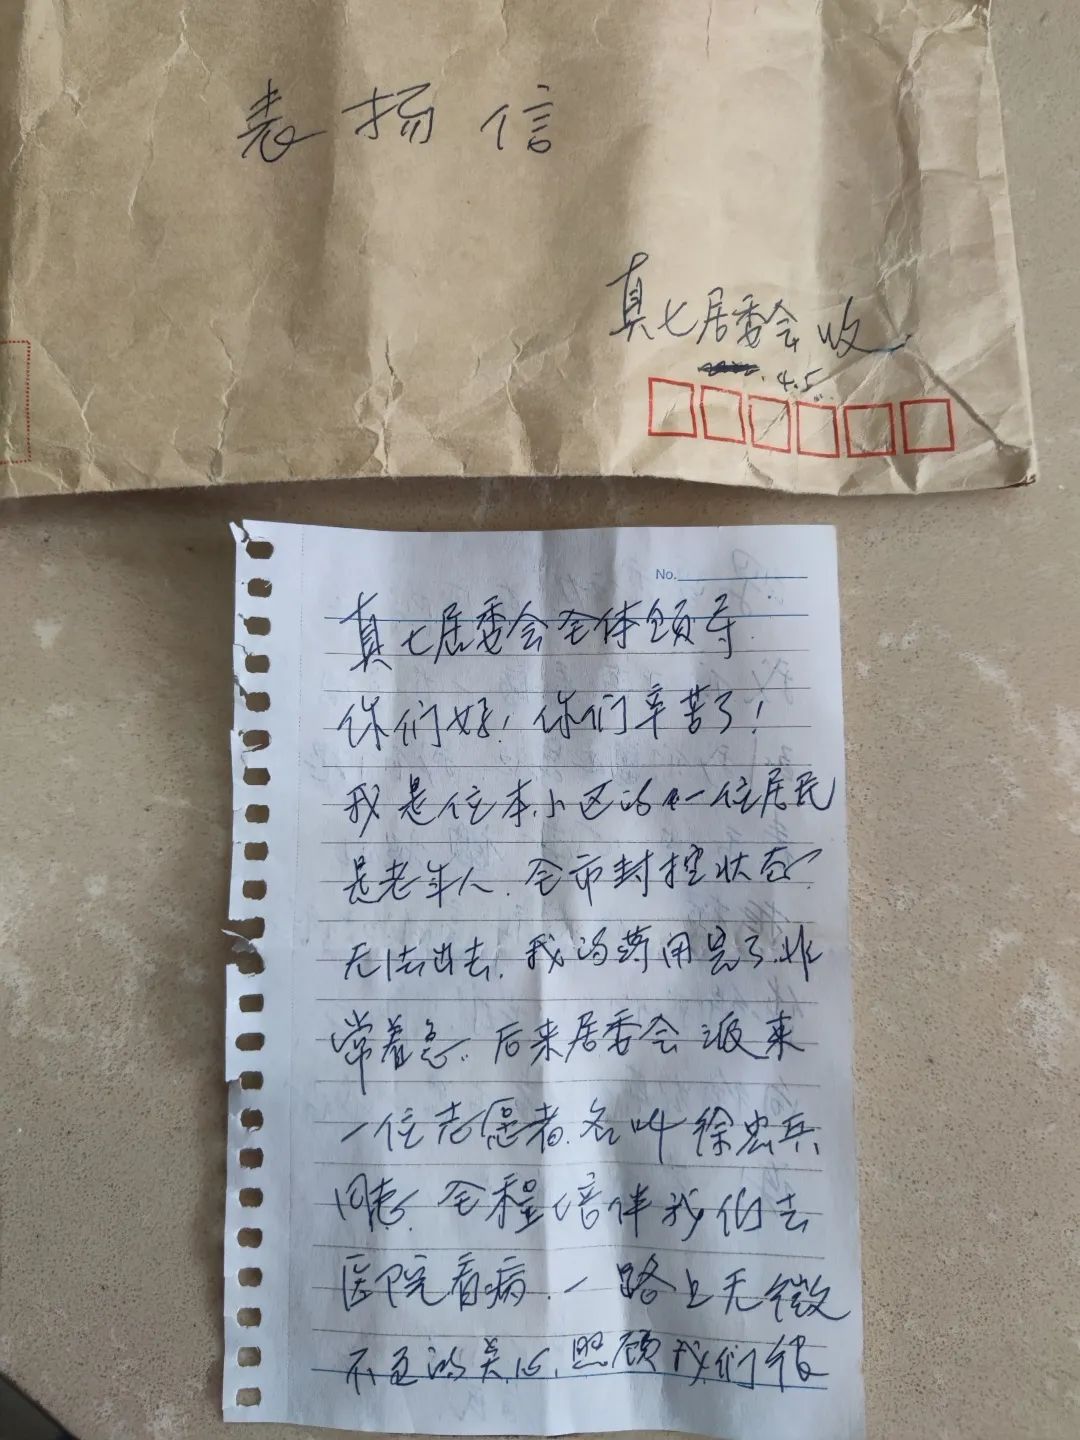 表扬信
真七居委会收
4.5
No.
真七居委会全体领导
你们好!你们辛苦了!
我是住本小区的一位居民
是老年人.全市封控状态
无法进去.我的药用完了.非
常着急.后来居委会派来
一位志愿者.名叫徐忠兵
同志.全程陪伴我们去
医院看病.一路上无微
不至的关心.照顾我们很